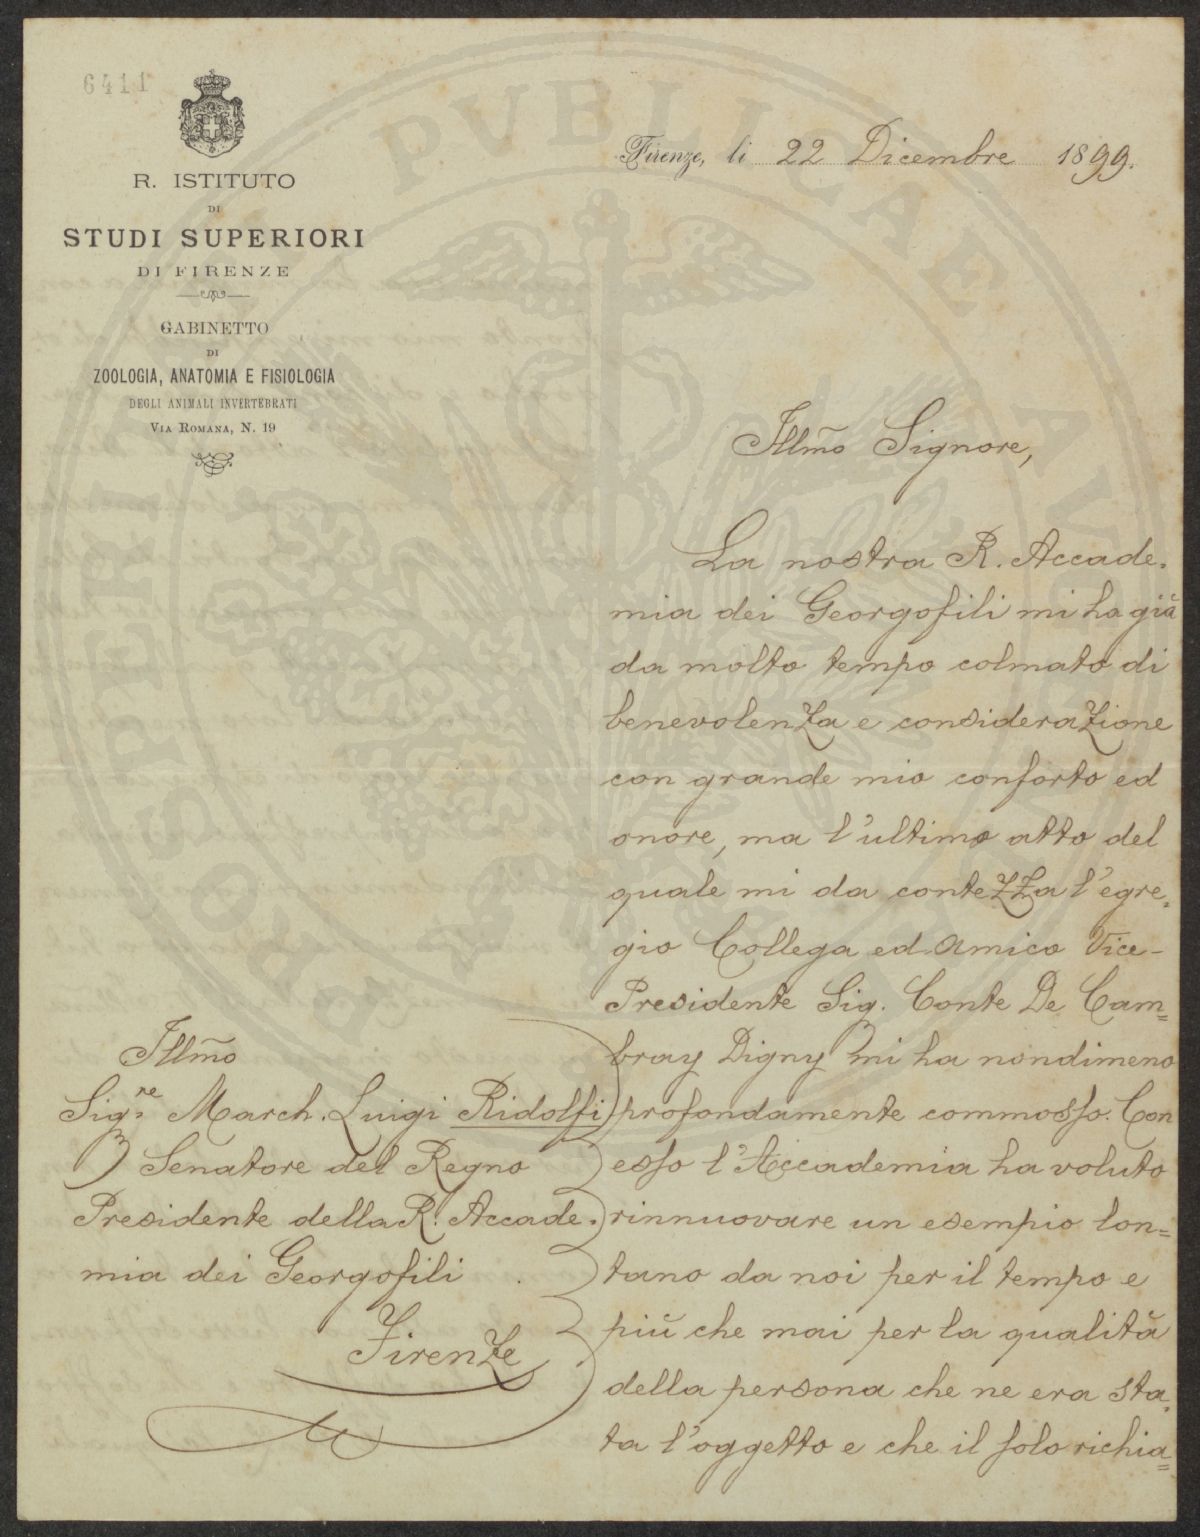 6411
R. ISTITUTO
DI
STUDI SUPERIORI
DI FIRENZE
GABINETTO
DI
ZOOLOGIA, ANATOMIA E FISIOLOGIA
DEGLI ANIMALI INVERTEBRATI
VIA ROMANA, N. 19
Firenze, li 22 Dicembre 1899.
Illm̃o Signore,
La nostra R. Accade-
mia dei Georgofili mi ha già
da molto tempo colmato di
benevolenza e considerazione
con grande mio conforto ed
onore, ma l'ultimo atto del
quale mi da contezza l'egre-
gio Collega ed Amico Vice-
Presidente Sig. Conte De Cam=
bray Digny mi ha nondimeno
profondamente commosso. Con
esso l'Accademia ha voluto
rinnuovare un esempio lon=
tano da noi per il tempo e
più che mai per la qualità
della persona che ne era sta-
ta l'oggetto e che il solo richia=
Illm̃o
Sig.re March. Luigi Ridolfi
Senatore del Regno
Presidente della R. Accade-
mia dei Georgofili
Firenze
PUBLICAE
PROSPERITATI